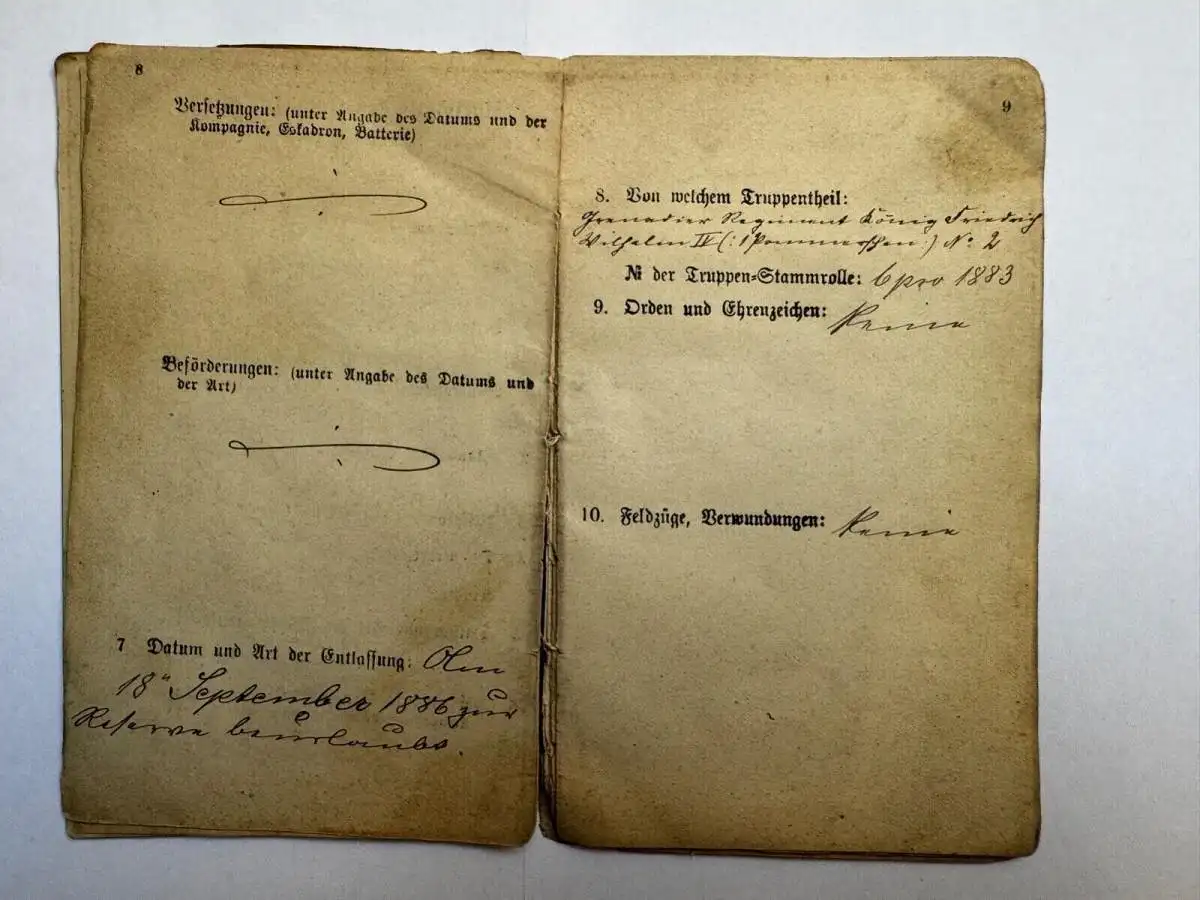 8
Versetzungen: (unter Angabe des Datums und der
Kompagnie, Eskadron, Batterie)
Beförderungen: (unter Angabe des Datums und
der Art)
7 Datum und Art der Entlassung: Am
18ⁿ September 1886 zur
Reserve beurlaubt.
9
8. Von welchem Truppentheil:
Grenadier Regiment König Friedrich
Wilhelm IV (: 1 Pommerschen :) No 2
№ der Truppen-Stammrolle: 6 pro 1883
9. Orden und Ehrenzeichen: Keine
10. Feldzüge, Verwundungen: Keine